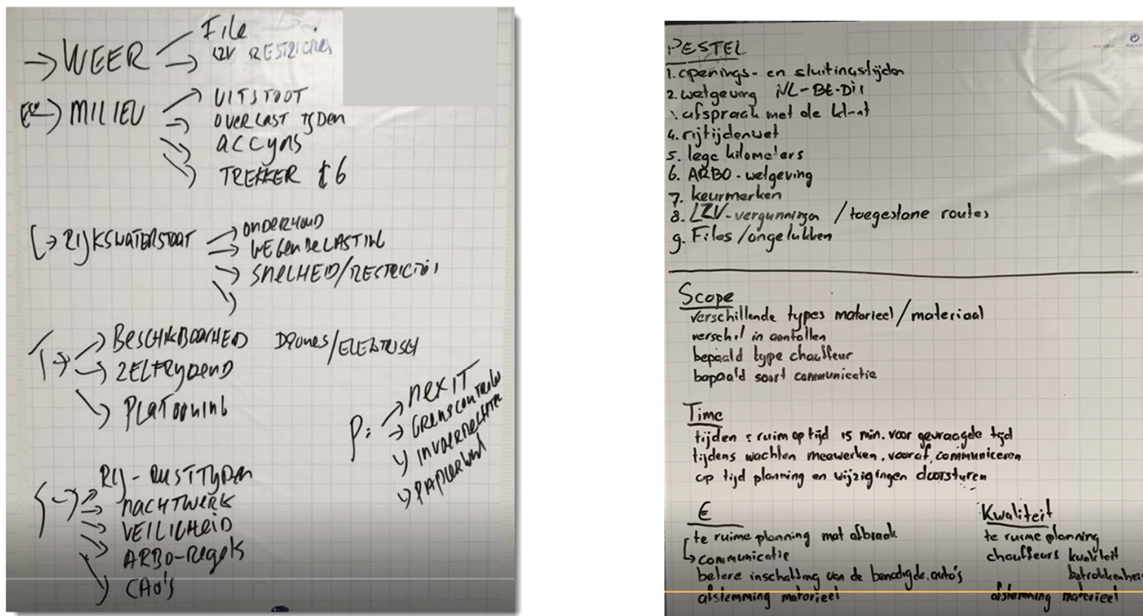 → WEER
File
LZV RESTRICTIES
→ MILIEU
UITSTOOT
OVERLAST TIJDEN
ACCIJNS
TREKKER €6
→ RIJKSWATERSTAAT
ONDERHOUD
WEGENBELASTING
SNELHEID/RESTRICTIES
T →
BESCHIKBAARHEID DRONES/ELEKTRISCH
ZELFRIJDEND
PLATOONING
P:
NEXIT
GRENSCONTROLE
INVOERRECHTEN
PAPIERWINKEL
S →
RIJ-RUSTTIJDEN
NACHTWERK
VEILIGHEID
ARBO-Regels
CAO'S
PESTEL
1. openings- en sluitingstijden
2. wetgeving NL-BE-Dii
afspraak met de klant
4. rijtijdenwet
5. lege kilometers
6. ARBO-wetgeving
7. keurmerken
8. LZV-vergunningen /toegestane routes
9. Files/ongelukken
Scope
verschillende types materieel/materiaal
verschil in aantallen
bepaald type chauffeur
bepaald soort communicatie
Time
tijden : ruim op tijd 15 min. voor gevraagde tijd
tijdens wachten meewerken. vooraf communiceren
op tijd planning en wijzigingen doorsturen
€
te ruime planning met afbraak
↳ communicatie
betere inschatting van de benodigde auto's
afstemming materieel
Kwaliteit
te ruime planning
chauffeurs kwaliteit
betrokkenhei
afstemming materieel